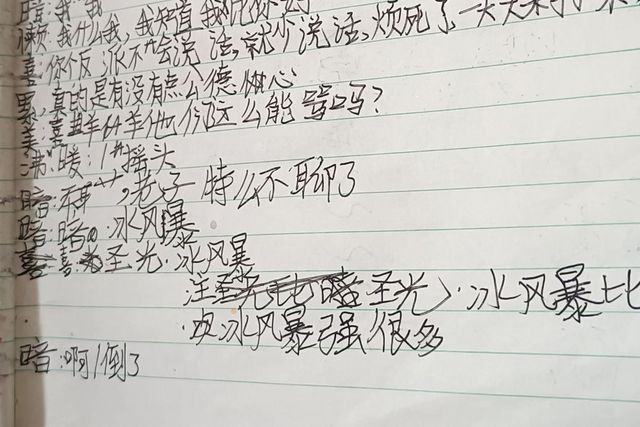 暗:我,我
懒:我什么我,我知道我
喜:你个反派不会说话,就少说话,烦死了一天天
累,真的是有没有点公德心
美:喜羊羊他们这么能骂吗?
沸:暖:!"摇头
暗:,老子特么不聊了
暗:暗·冰风暴
喜:圣光·冰风暴
注圣光·冰风暴比
冰风暴强很多
暗:啊!倒了